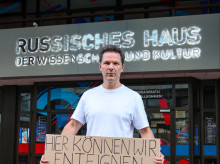 RUSSISCHES HAUS
DER WISSENSCHAFT UND KULTUR
HIER KÖNNEN WIR